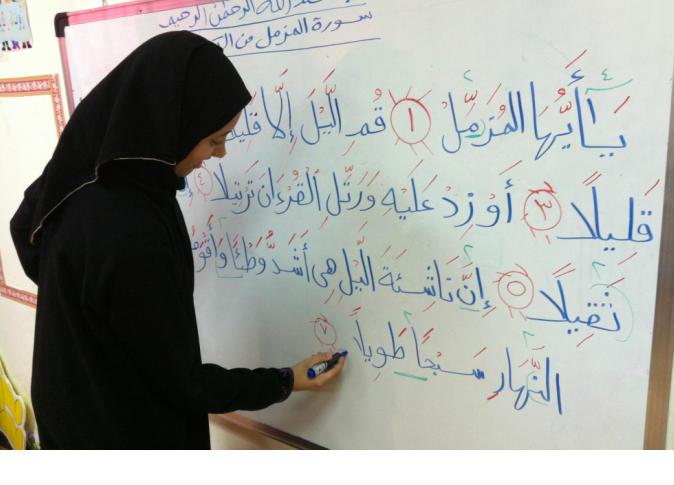 الله الرحمن الرحيم
سورة المزمل من
يَـٰٓأَيُّهَا المُزَّمِّلُ ١ قُمِ الَّيْلَ إِلَّا
قَلِيلًا ٣ أَوْ زِدْ عَلَيْهِ وَرَتِّلِ القُرْءَانَ تَرْتِيلًا ٤
ثَقِيلًا ٥ إِنَّ نَاشِئَةَ الَّيْلِ هِىَ أَشَدُّ وَطْئًا وَأَقْوَمُ
النَّهَارِ سَبْحًا طَوِيلًا ٧